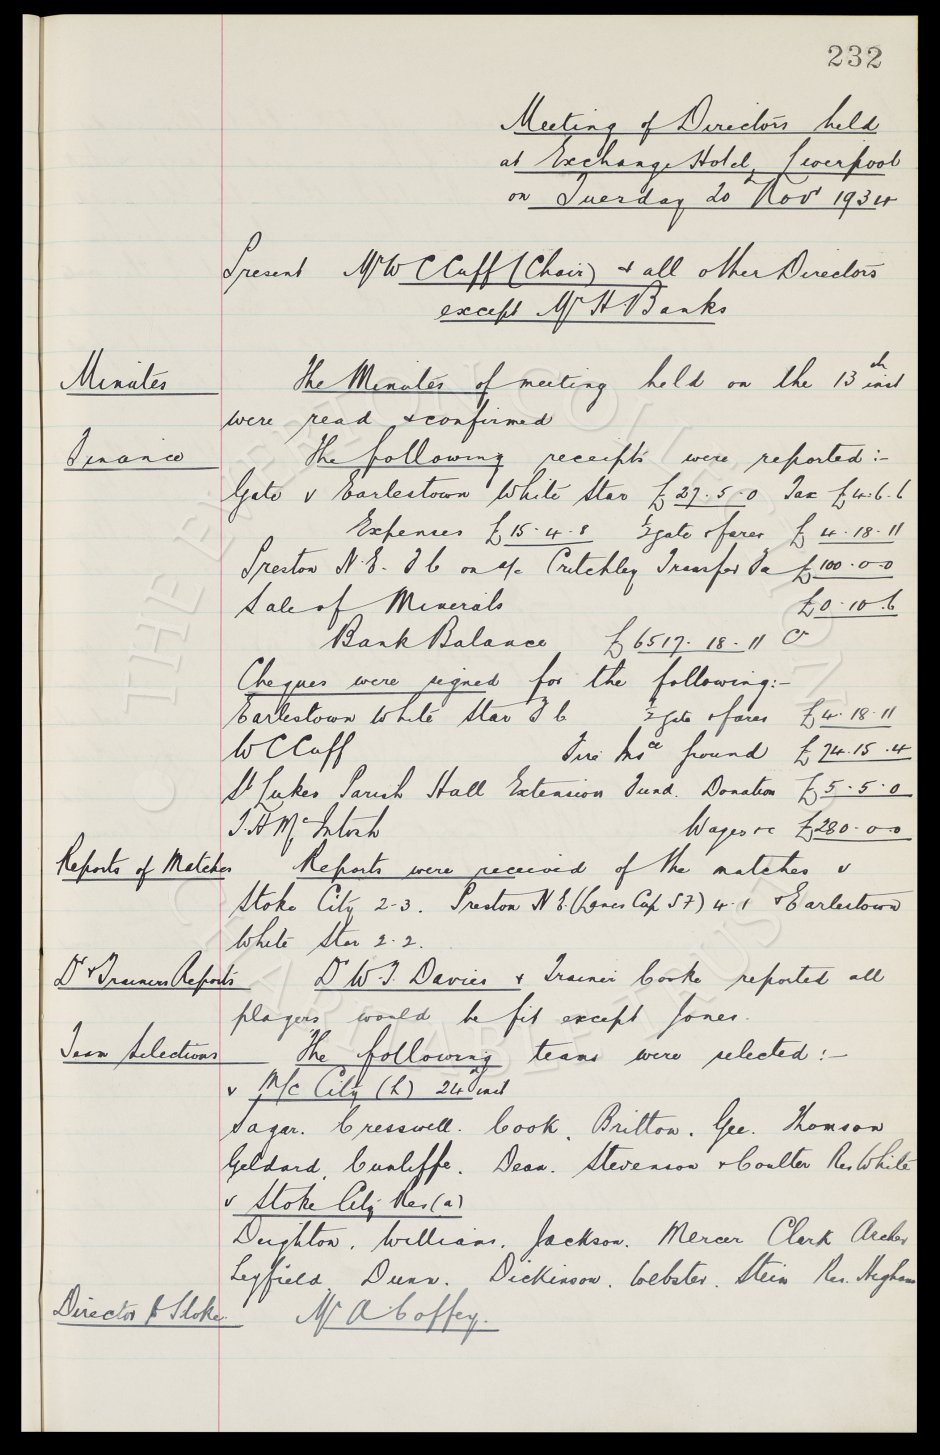 232
Meeting of Directors held
at Exchange Hotel, Liverpool
on Tuesday 20 Novr 1934
Present Mr W C Cuff (Chair) & all other Directors
except Mr H. Banks
Minutes The Minutes of meeting held on the 13th inst
were read & confirmed
Finance The following receipts were reported:-
Gate v Earlestown White Star £27.5.0 Tax £4.6.6
Expenses £15.4.8 ½ gate & fares £4.18.11
Preston N.E. F C on a/c Critchley Transfer Fee £100.0.0
Sale of Minerals £0.10.6
Bank Balance £6517.18.11
Cheques were signed for the following:-
Earlestown White Star F C ½ gate & fares £4.18.11
W C Cuff Fire Insce ground £74.15.4
St Lukes Parish Hall Extension Fund. Donation £5.5.0
T. H McIntosh Wages &c £280.0.0
Reports of Matches Reports were received of the matches v
Stoke City 2-3. Preston N E. (Lancs Cup SF) 4-1 & Earlestown
White Star 2-2.
Dr & Trainers Reports Dr W. J. Davies & Trainer Cooke reported all
players would be fit except Jones.
Team Selections The following teams were selected:-
v M/c City (h) 24th inst
Sagar. Cresswell. Cook, Britton, Gee. Thomson
Geldard, Cunliffe. Dean. Stevenson & Coulter Res White
v Stoke City Res (a)
Deighton, Williams, Jackson. Mercer Clark Archer
Leyfield Dunn. Dickinson, Webster. Stein Res. Higham
Director to Stoke. Mr A Coffey.
THE EVERTON COLLECTION CHARITABLE TRUST